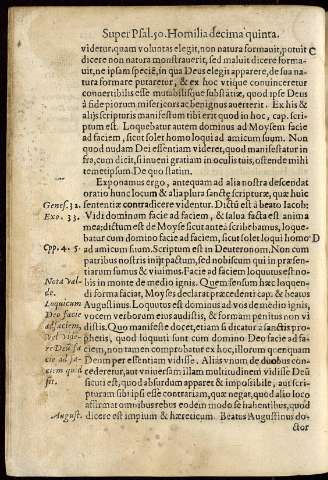 Super Psal.50. Homilia decima quinta.
videtur, quam voluntas elegit, non natura formauit, potuit C
dicere non natura monstrauerit, sed maluit dicere forma-
uit, ne ipsam speciē, in qua Deus elegit apparere, de sua na-
tura formare putaretur, & ex hoc vtique conuinceretur
conuertibilis esse mutabilisque substātiæ, quod ipse Deus
à fide piorum misericors ac benignus auerterit. Ex his &
alijs scripturis manifestum tibi erit quod in hoc, cap. scri-
ptum est. Loquebatur autem dominus ad Moysem facie
ad faciem, sicut solet homo loqui ad amicum suum. Non
quod nudam Dei essentiam videret, quod manifestatur in
frà, cum dicit, si inueni gratiam in oculis tuis, ostende mihi
temetipsum. De quo statim.
Exponamus ergo, antequam ad alia nostra descendat
oratio hunc locum & alia plura sanctę scripturæ, quæ huic
Genes. 32. sententiæ contradicere videntur. Dictū est à beato Iacob;
Exo. 33. Vidi dominum facie ad faciem, & salua facta est anima
mea; dictum est de Moyse sicut ante scribebamus, loque-
batur cum domino facie ad faciem, sicut solet loqui homo D
Cpp. 4. 5. ad amicum suum. Scriptum est in Deuteronom. Non cum
patribus nostris inijt pactum, sed nobiscum qui in præsen-
tiarum sumus & viuimus. Facie ad faciem loquutus est no-
Nota val- bis in monte de medio ignis. Quem sensum hæc loquen-
de. di forma faciat, Moyses declarat præcedenti cap. & beatus
Loquicum Augustinus. Loquutus est dominus ad vos de medio ignis,
Deo facie vocem verborum eius audistis, & formam penitus non vi
ad faciem, distis. Quo manifeste docet, etiam si dicatur à sanctis pro-
vel vide- phetis, quod loquuti sunt cum domino Deo facie ad fa-
re Deū fa ciem, non tamen comprobatur ex hoc, illorum quenquam
cie ad fa- Deum per essentiam vidisse. Alias vnum de duobus con-
ciem quid cederetur, aut vniuersam illam multitudinem vidisse Deū
sit. sicuti est, quod absurdum apparet & impossibile, aut scri-
pturam sibi ipsi esse contrariam, quæ negat, quod alio loco
affirmat omnibus rebus eodem modo se habentibus, quod
August. dicere est impium & hæreticum. Beatus Augustinus do-
ctor